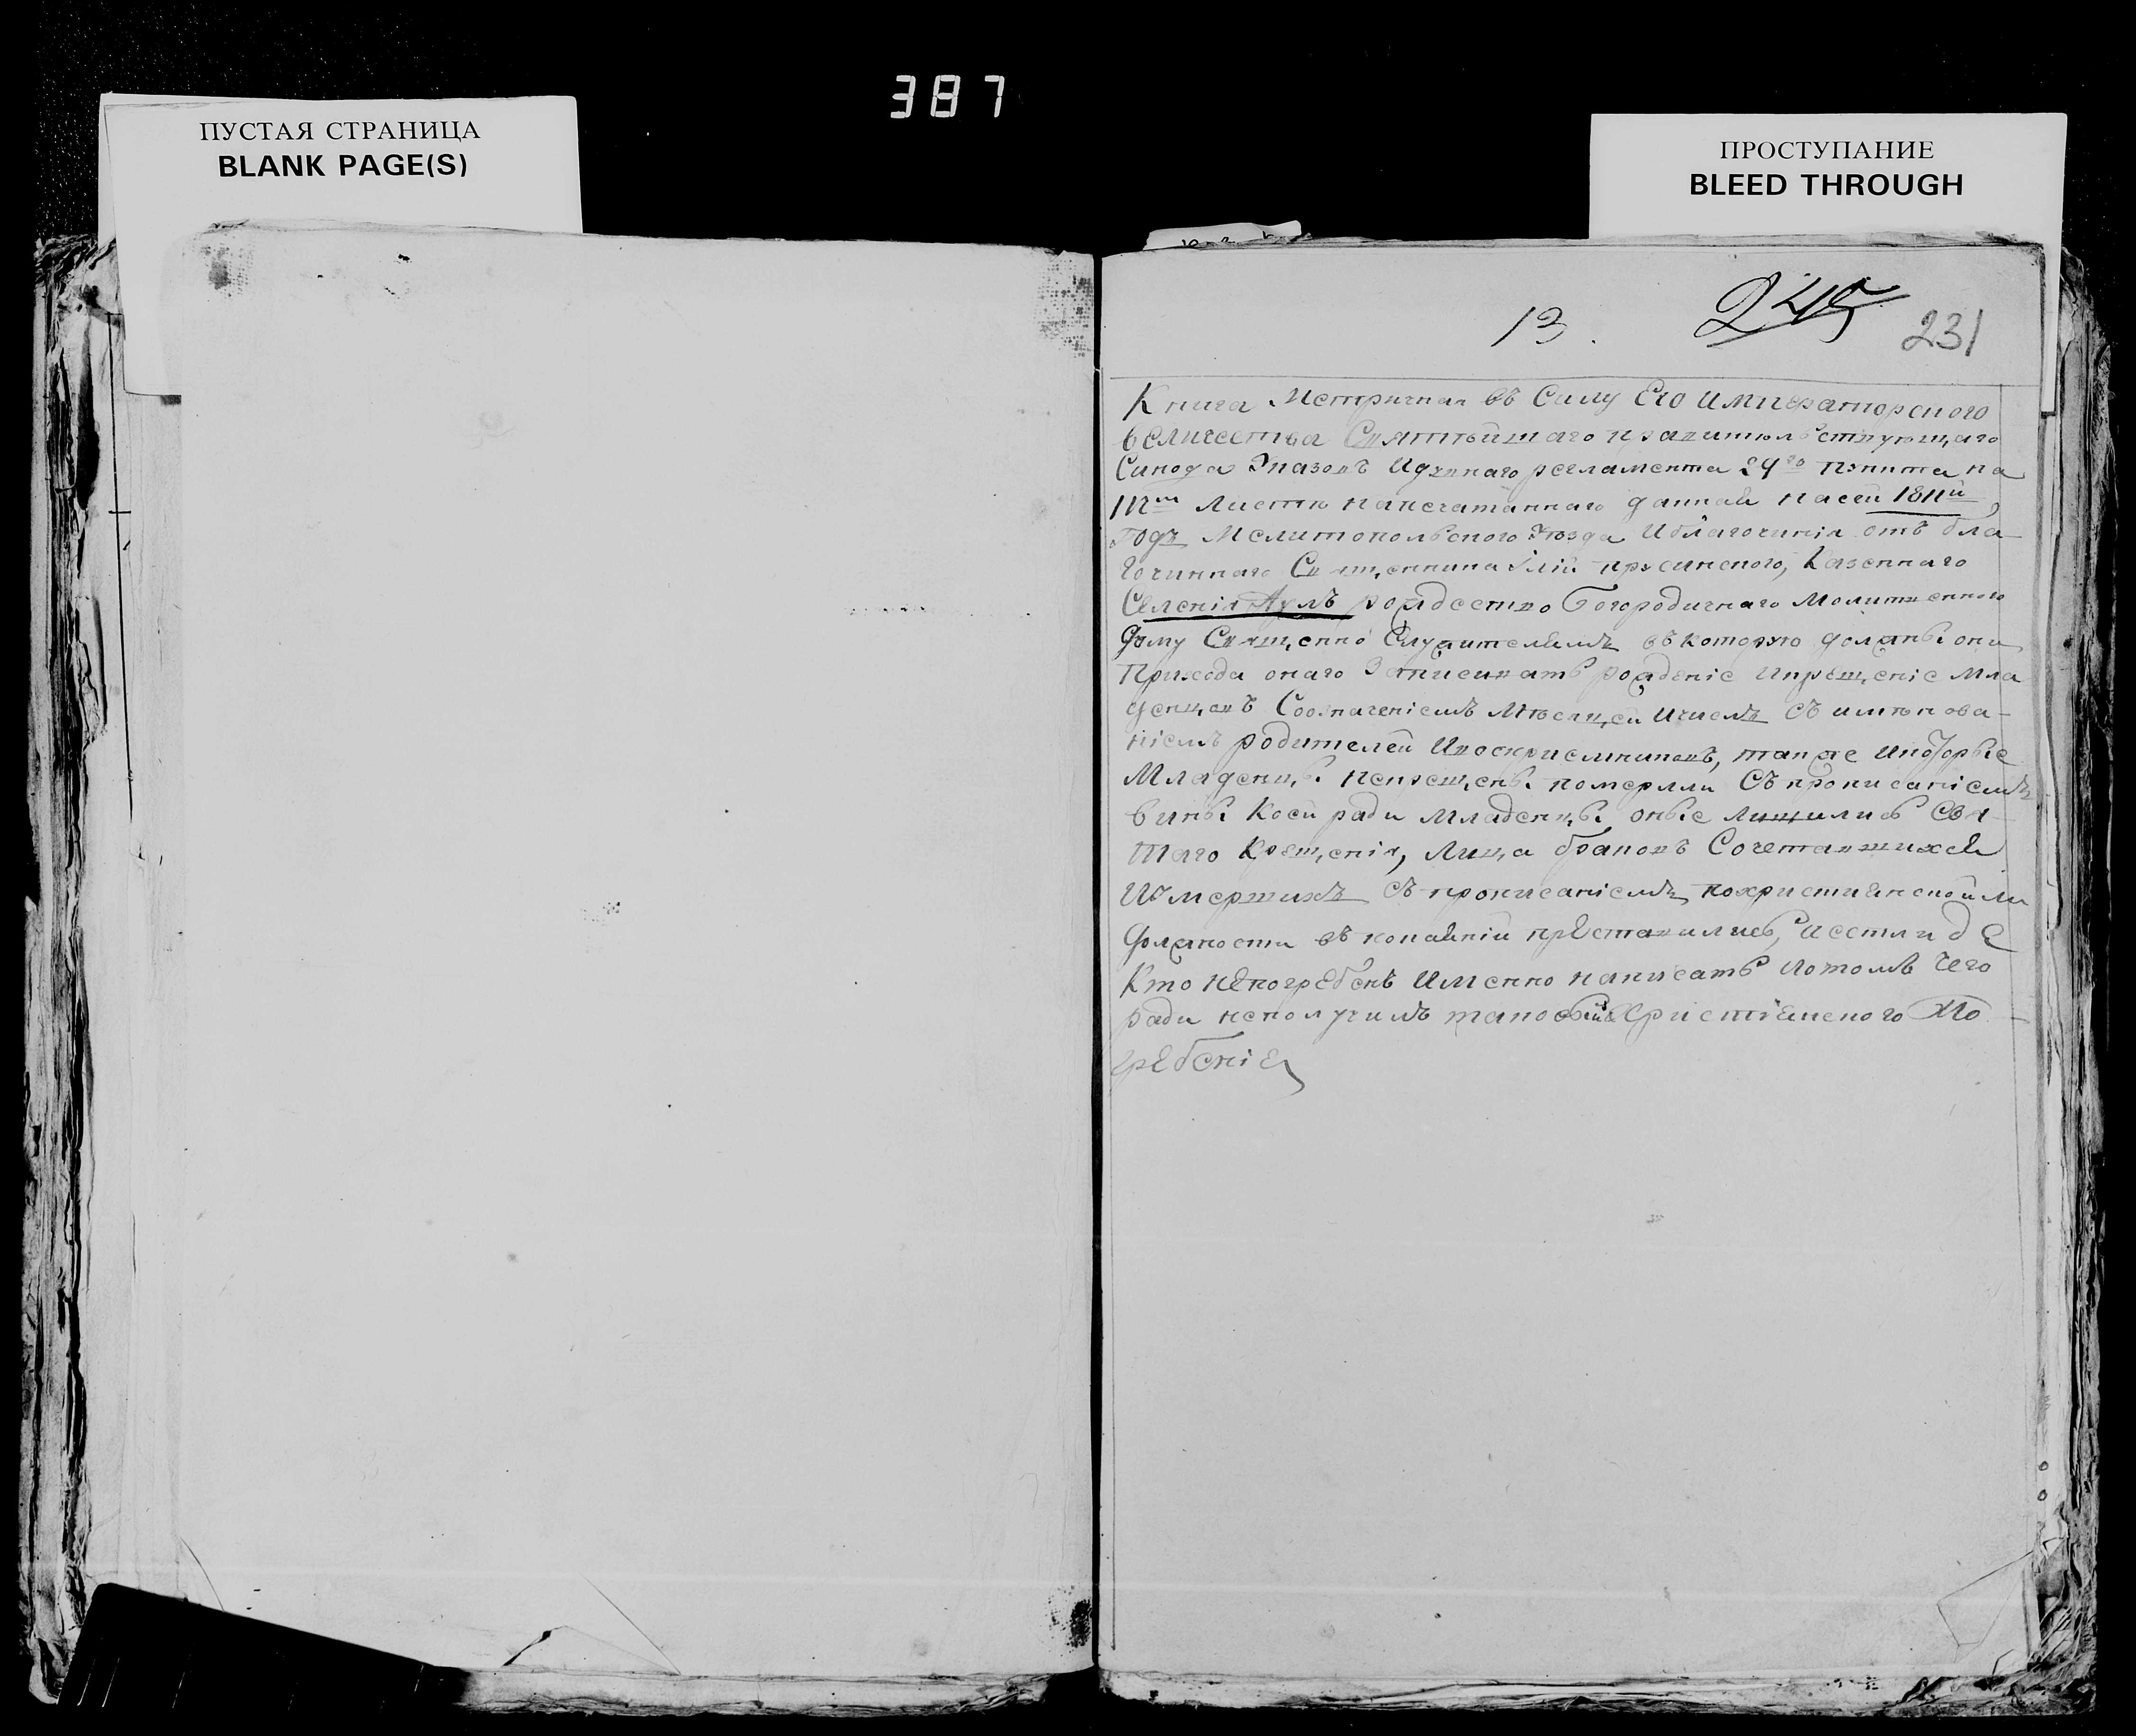 387
ПУСТАЯ СТРАНИЦА
BLANK PAGE(S)
ПРОСТУПАНИЕ
BLEED THROUGH
13. 245 231
Книга Метричная въ Силу Его Императорского
величества Святейшаго правительствующаго
Синода Указовъ Идуховнаго регламента 29го пункта на
листе напечатаннаго данная насей 1811й
годъ Мелитопольского уезда Иблагочинія отъ бла-
гочиннаго Священника Іліи Казеннаго
Селенія Аулъ рождество Богородичнаго Молитвенного
дому Священно Служителямъ въ которую должны они
Прихода онаго Записивать рожденіе Икрещеніе Мла
денцовъ Соозначеніемъ Месяцей Ичиселъ Съ имянова-
ніемъ родителей Ивоспріемниковъ, также Икоторые
Младенцы некрещены померли Съ прописаніемъ
вины Коей ради младенцы оные лишились Свя-
таго Крещенія, Лица браковъ Сочетавшихся
Иумершихъ Съ прописаніемъ похристіянской ли
должности въ покаяніи преставились, Иестли де
Кто непогребенъ Именно написать потомъ Чего
ради неполучилъ таковый Христіянского По-
гребенія